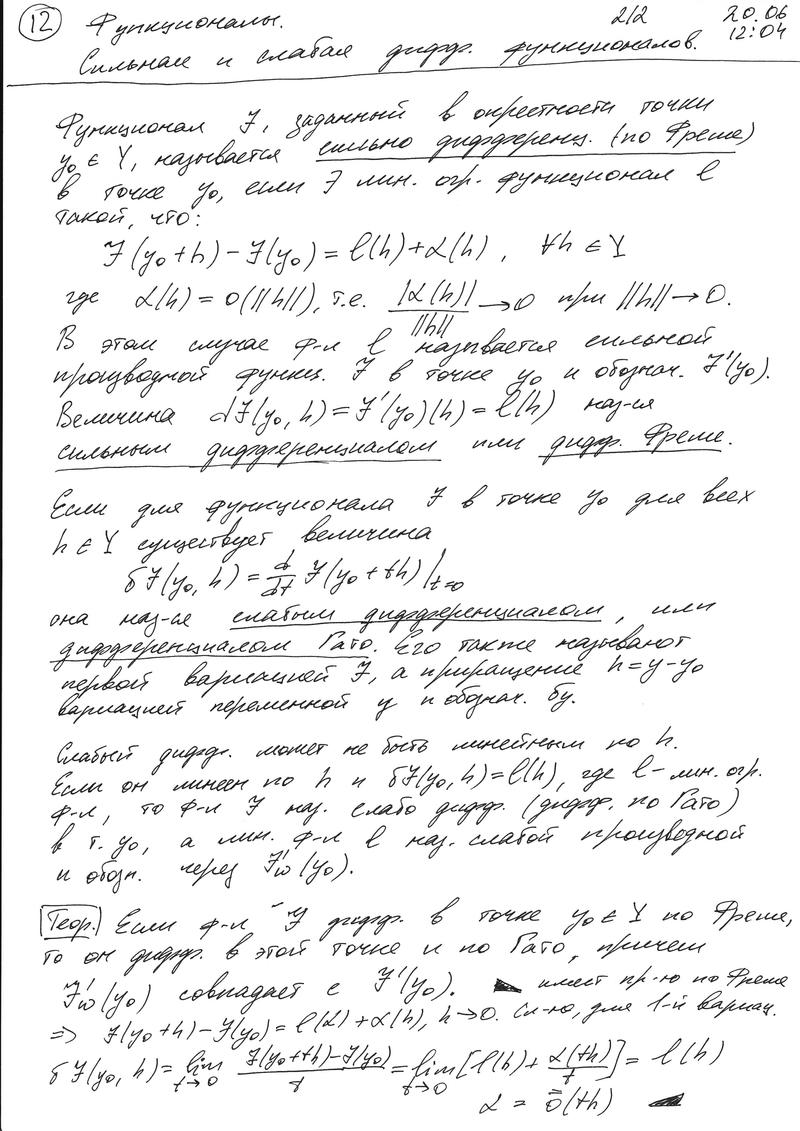 12 Функционалы. 2/2 20.06
Сильная и слабая дифф. функционалов. 12:04
Функционал J, заданный в окрестности точки
y₀ ∈ Y, называется сильно дифференц. (по Фреше)
в точке y₀, если ∃ лин. огр. функционал l
такой, что:
J(y₀+h) − J(y₀) = l(h) + α(h), ∀h ∈ Y
где α(h) = o(||h||), т.е. |α(h)|/||h|| → 0 при ||h|| → 0.
В этом случае ф-л l называется сильной
производной функц. J в точке y₀ и обознач. J'(y₀).
Величина dJ(y₀, h) = J'(y₀)(h) = l(h) наз-ся
сильным дифференциалом или дифф. Фреше.
Если для функционала J в точке y₀ для всех
h ∈ Y существует величина
δJ(y₀, h) = d/dt J(y₀ + th)|t=0
она наз-ся слабым дифференциалом, или
дифференциалом Гато. Его также называют
первой вариацией J, а приращение h = y − y₀
вариацией переменной y и обознач. δy.
Слабый дифф. может не быть линейным по h.
Если он линеен по h и δJ(y₀, h) = l(h), где l – лин. огр.
ф-л, то ф-л J наз. слабо дифф. (дифф. по Гато)
в т. y₀, а лин. ф-л l наз. слабой производной
и обозн. через J'ω(y₀).
Теор. Если ф-л J дифф. в точке y₀ ∈ Y по Фреше,
то он дифф. в этой точке и по Гато, причем
J'ω(y₀) совпадает с J'(y₀). ◣ имеет пр-ю по Фреше
=> J(y₀+h) − J(y₀) = l(α) + α(h), h→0. Сл-ю, для 1-й вариац.
δJ(y₀, h) = lim t→0 (J(y₀+th) − J(y₀))/t = lim t→0 [l(h) + α(th)/t] = l(h)
α = ō(th) ◢